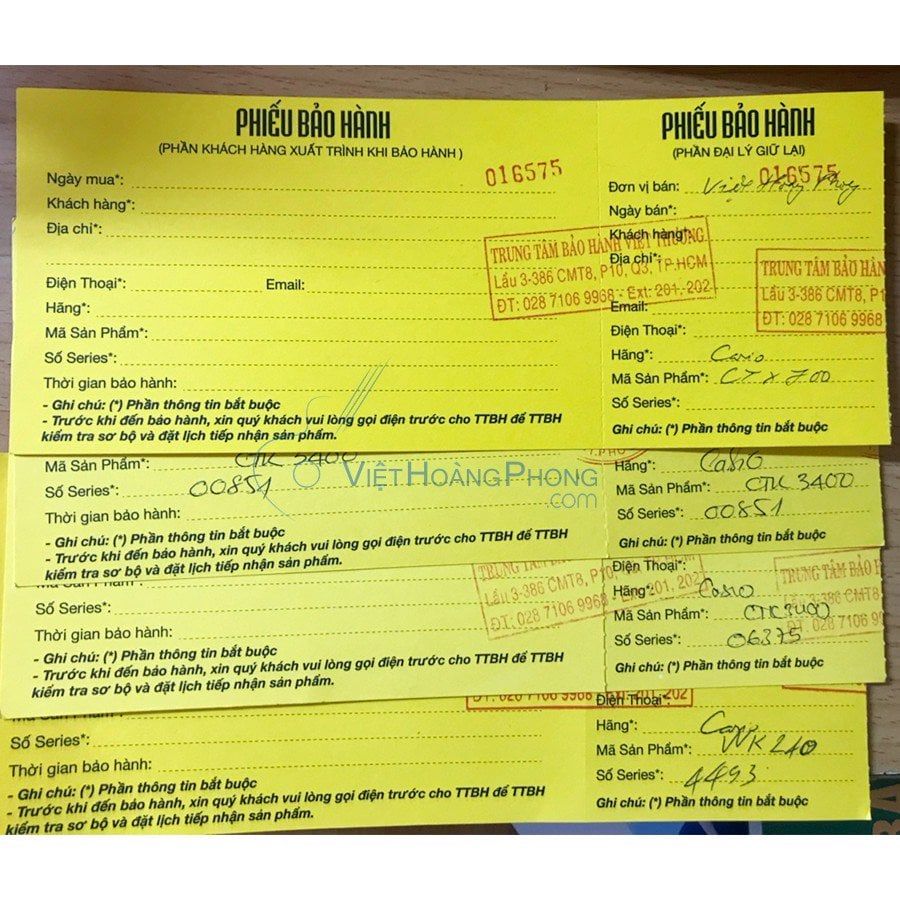 PHIẾU BẢO HÀNH
(PHẦN KHÁCH HÀNG XUẤT TRÌNH KHI BẢO HÀNH)
016575
Ngày mua*:
Khách hàng*:
Địa chỉ*:
Điện Thoại*: Email:
Hãng*:
Mã Sản Phẩm*:
Số Series*:
Thời gian bảo hành:
- Ghi chú: (*) Phần thông tin bắt buộc
- Trước khi đến bảo hành, xin quý khách vui lòng gọi điện trước cho TTBH để TTBH
kiểm tra sơ bộ và đặt lịch tiếp nhận sản phẩm.
TRUNG TÂM BẢO HÀNH VIỆT THƯƠNG
Lầu 3-386 CMT8, P10, Q3, TP.HCM
ĐT: 028 7106 9968 - Ext: 201, 202
PHIẾU BẢO HÀNH
(PHẦN ĐẠI LÝ GIỮ LẠI)
016575
Đơn vị bán: Việt Hoàng Phong
Ngày bán*:
Khách hàng*:
Địa chỉ*:
Email:
Điện Thoại*:
Hãng*: Casio
Mã Sản Phẩm*: CTX700
Số Series*:
Ghi chú: (*) Phần thông tin bắt buộc
TRUNG TÂM BẢO HÀN
Lầu 3-386 CMT8, P1
ĐT: 028 7106 9968
VIỆTHOÀNGPHONG
.com
Mã Sản Phẩm*: CTK 3400
Số Series*: 00851
Thời gian bảo hành:
- Ghi chú: (*) Phần thông tin bắt buộc
- Trước khi đến bảo hành, xin quý khách vui lòng gọi điện trước cho TTBH để TTBH
kiểm tra sơ bộ và đặt lịch tiếp nhận sản phẩm.
Hãng*: Casio
Mã Sản Phẩm*: CTK 3400
Số Series*: 00851
Ghi chú: (*) Phần thông tin bắt buộc
Mã Sản Phẩm*:
Số Series*:
Thời gian bảo hành:
- Ghi chú: (*) Phần thông tin bắt buộc
- Trước khi đến bảo hành, xin quý khách vui lòng gọi điện trước cho TTBH để TTBH
kiểm tra sơ bộ và đặt lịch tiếp nhận sản phẩm.
TRUNG TÂM BẢO HÀNH
Lầu 3-386 CMT8, P10
ĐT: 028 7106 9968 - Ext: 201, 202
Điện Thoại*:
Hãng*: Casio
Mã Sản Phẩm*: CTK3400
Số Series*: 06375
Ghi chú: (*) Phần thông tin bắt buộc
TRUNG TÂM BẢO H
Lầu 3-386 CMT8
ĐT: 028 7106 99
Mã Sản Phẩm*:
Số Series*:
Thời gian bảo hành:
- Ghi chú: (*) Phần thông tin bắt buộc
- Trước khi đến bảo hành, xin quý khách vui lòng gọi điện trước cho TTBH để TTBH
kiểm tra sơ bộ và đặt lịch tiếp nhận sản phẩm.
ĐT: 028 7106 9968 - Ext: 201, 202
Điện Thoại*:
Hãng*: Casio
Mã Sản Phẩm*: WK 240
Số Series*: 4493
Ghi chú: (*) Phần thông tin bắt buộc